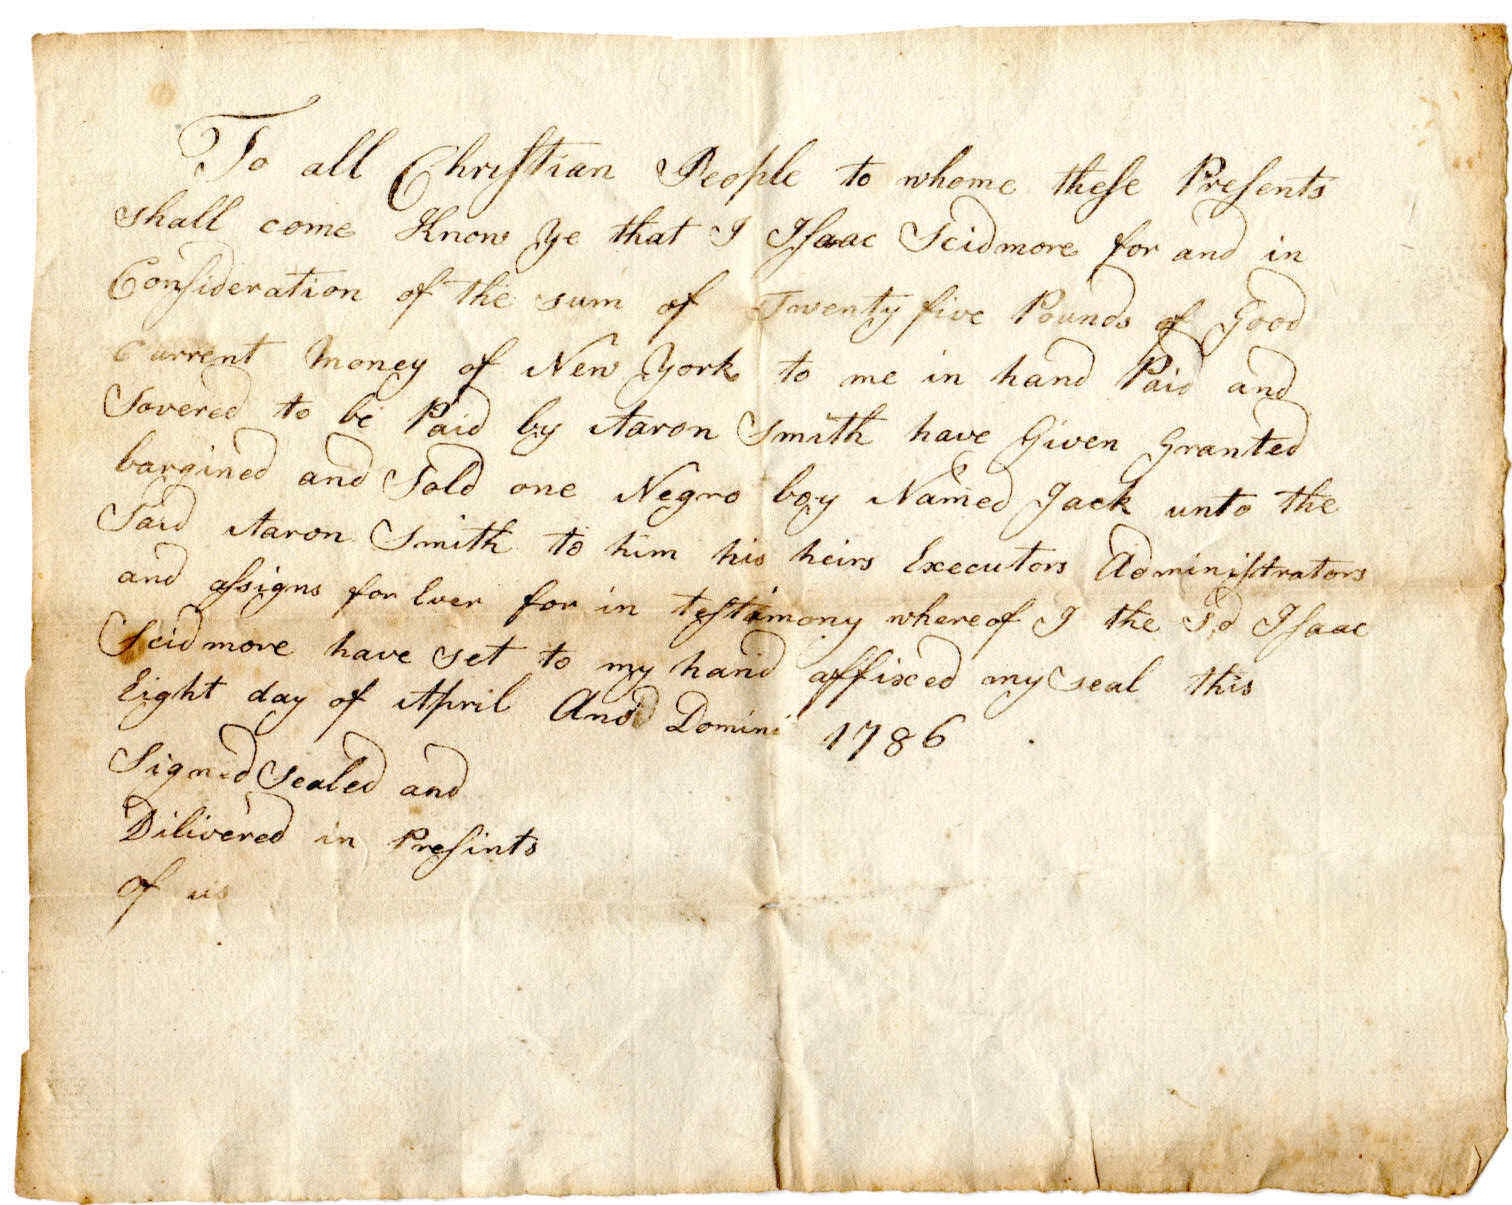 To all Christian People to whome these Presents
shall come Know ye that I Isaac Scidmore for and in
Consideration of the sum of Twenty five Pounds of Good
Current Money of New York to me in hand Paid and
Sovered to be Paid by Aaron Smith have Given Granted
bargined and Sold one Negro boy Named Jack unto the
Said Aaron Smith to him his heirs Executors Administrators
and assigns for Ever for in testimony whereof I the Sd Isaac
Scidmore have set to my hand affixed my seal this
Eight day of April Domini 1786
Signed Sealed and
Dilivered in Presints
of us